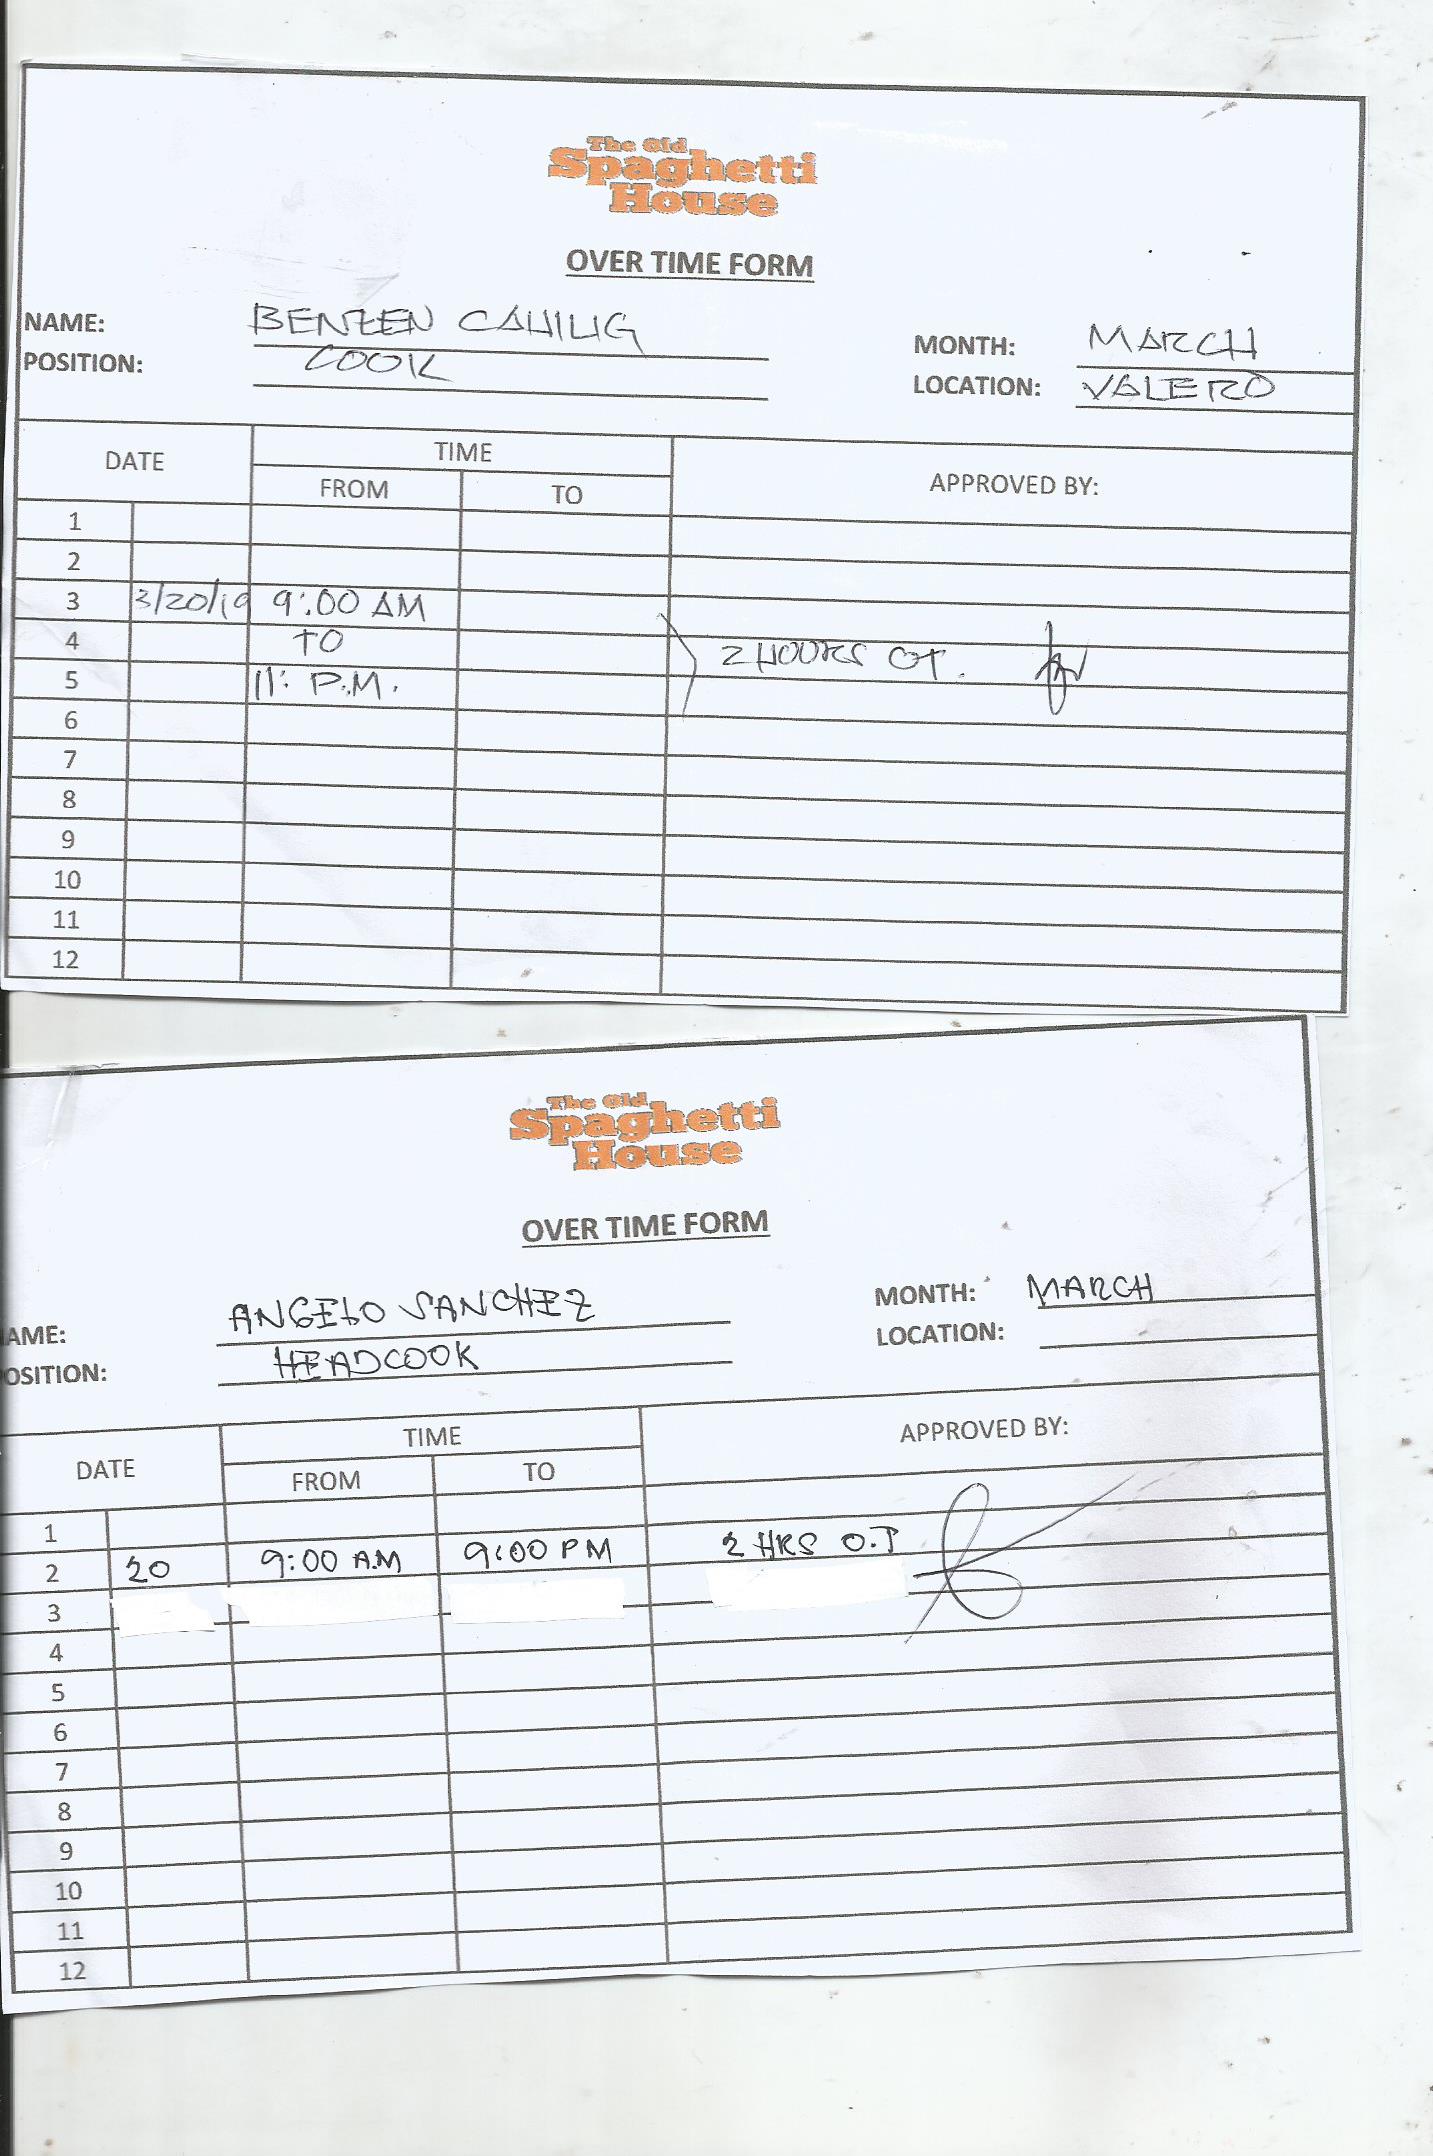 The Old
Spaghetti
House
OVER TIME FORM
NAME: BENZEN CAHILIG
POSITION: COOK
MONTH: MARCH
LOCATION: VALERO
DATE TIME APPROVED BY:
FROM TO
1
2
3 3/20/19 9:00 AM
4 TO 2 HOURS OT.
5 11: P.M.
6
7
8
9
10
11
12
The Old
Spaghetti
House
OVER TIME FORM
AME: ANGELO SANCHEZ
OSITION: HEADCOOK
MONTH: MARCH
LOCATION:
DATE TIME APPROVED BY:
FROM TO
1
2 20 9:00 A.M 9:00 PM 2 HRS O.T
3
4
5
6
7
8
9
10
11
12